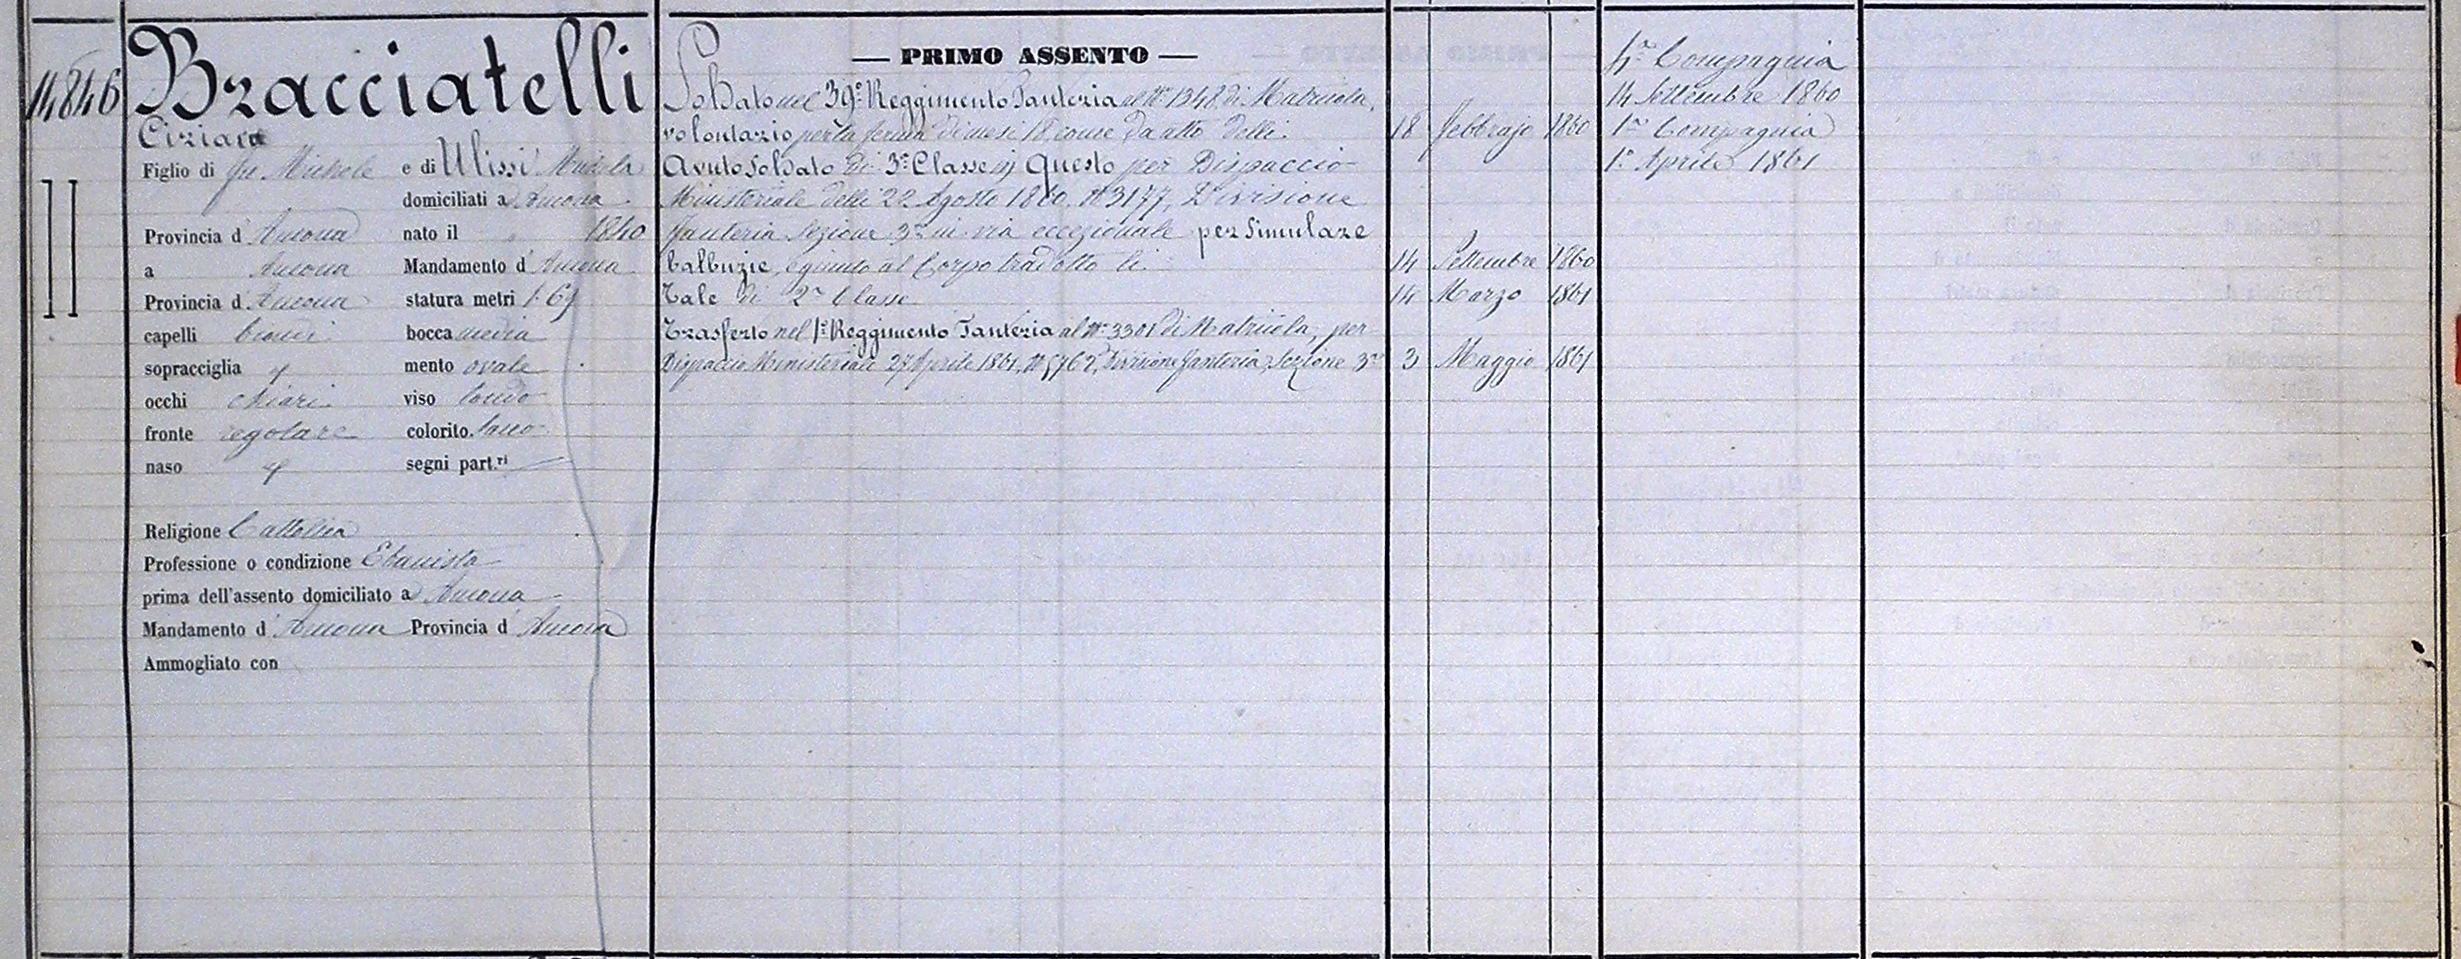 14846
Bracciatelli
Ciriaco
Figlio di fu Michele e di Ulissi Nicola
domiciliati a Ancona
Provincia d'Ancona nato il " 1840
a Ancona Mandamento d'Ancona
Provincia d'Ancona statura metri 1.69
capelli biondi bocca media
sopracciglia " mento ovale
occhi chiari viso tondo
fronte regolare colorito. sano
naso " segni part.ri
Religione Cattolica
Professione o condizione Ebanista
prima dell'assento domiciliato a Ancona
Mandamento d'Ancona Provincia d'Ancona
Ammogliato con
— PRIMO ASSENTO —
Soldato nel 39º Reggimento Fanteria al Nº 1348 di Matricola,
volontario per la ferma di mesi 18, come da atto delli. 18 febbrajo 1860
Avuto Soldato di 3ª Classe in Questo per Dispaccio
Ministeriale delli 22 Agosto 1860, Nº 3177, Divisione
Fanteria Sezione 3ª in via eccezionale per Simulare
balbuzie, e giunto al Corpo tradotto li. 14 Settembre 1860
Tale di 2ª Classe 14 Marzo 1861
Trasferto nel 1º Reggimento Fanteria al Nº 3301 di Matricola, per
Dispaccio Ministeriale 27 Aprile 1861, Nº 5762, Divisione Fanteria, Sezione 3ª 3 Maggio 1861
4ª Compagnia
14 Settembre 1860
1ª Compagnia
1º Aprile 1861